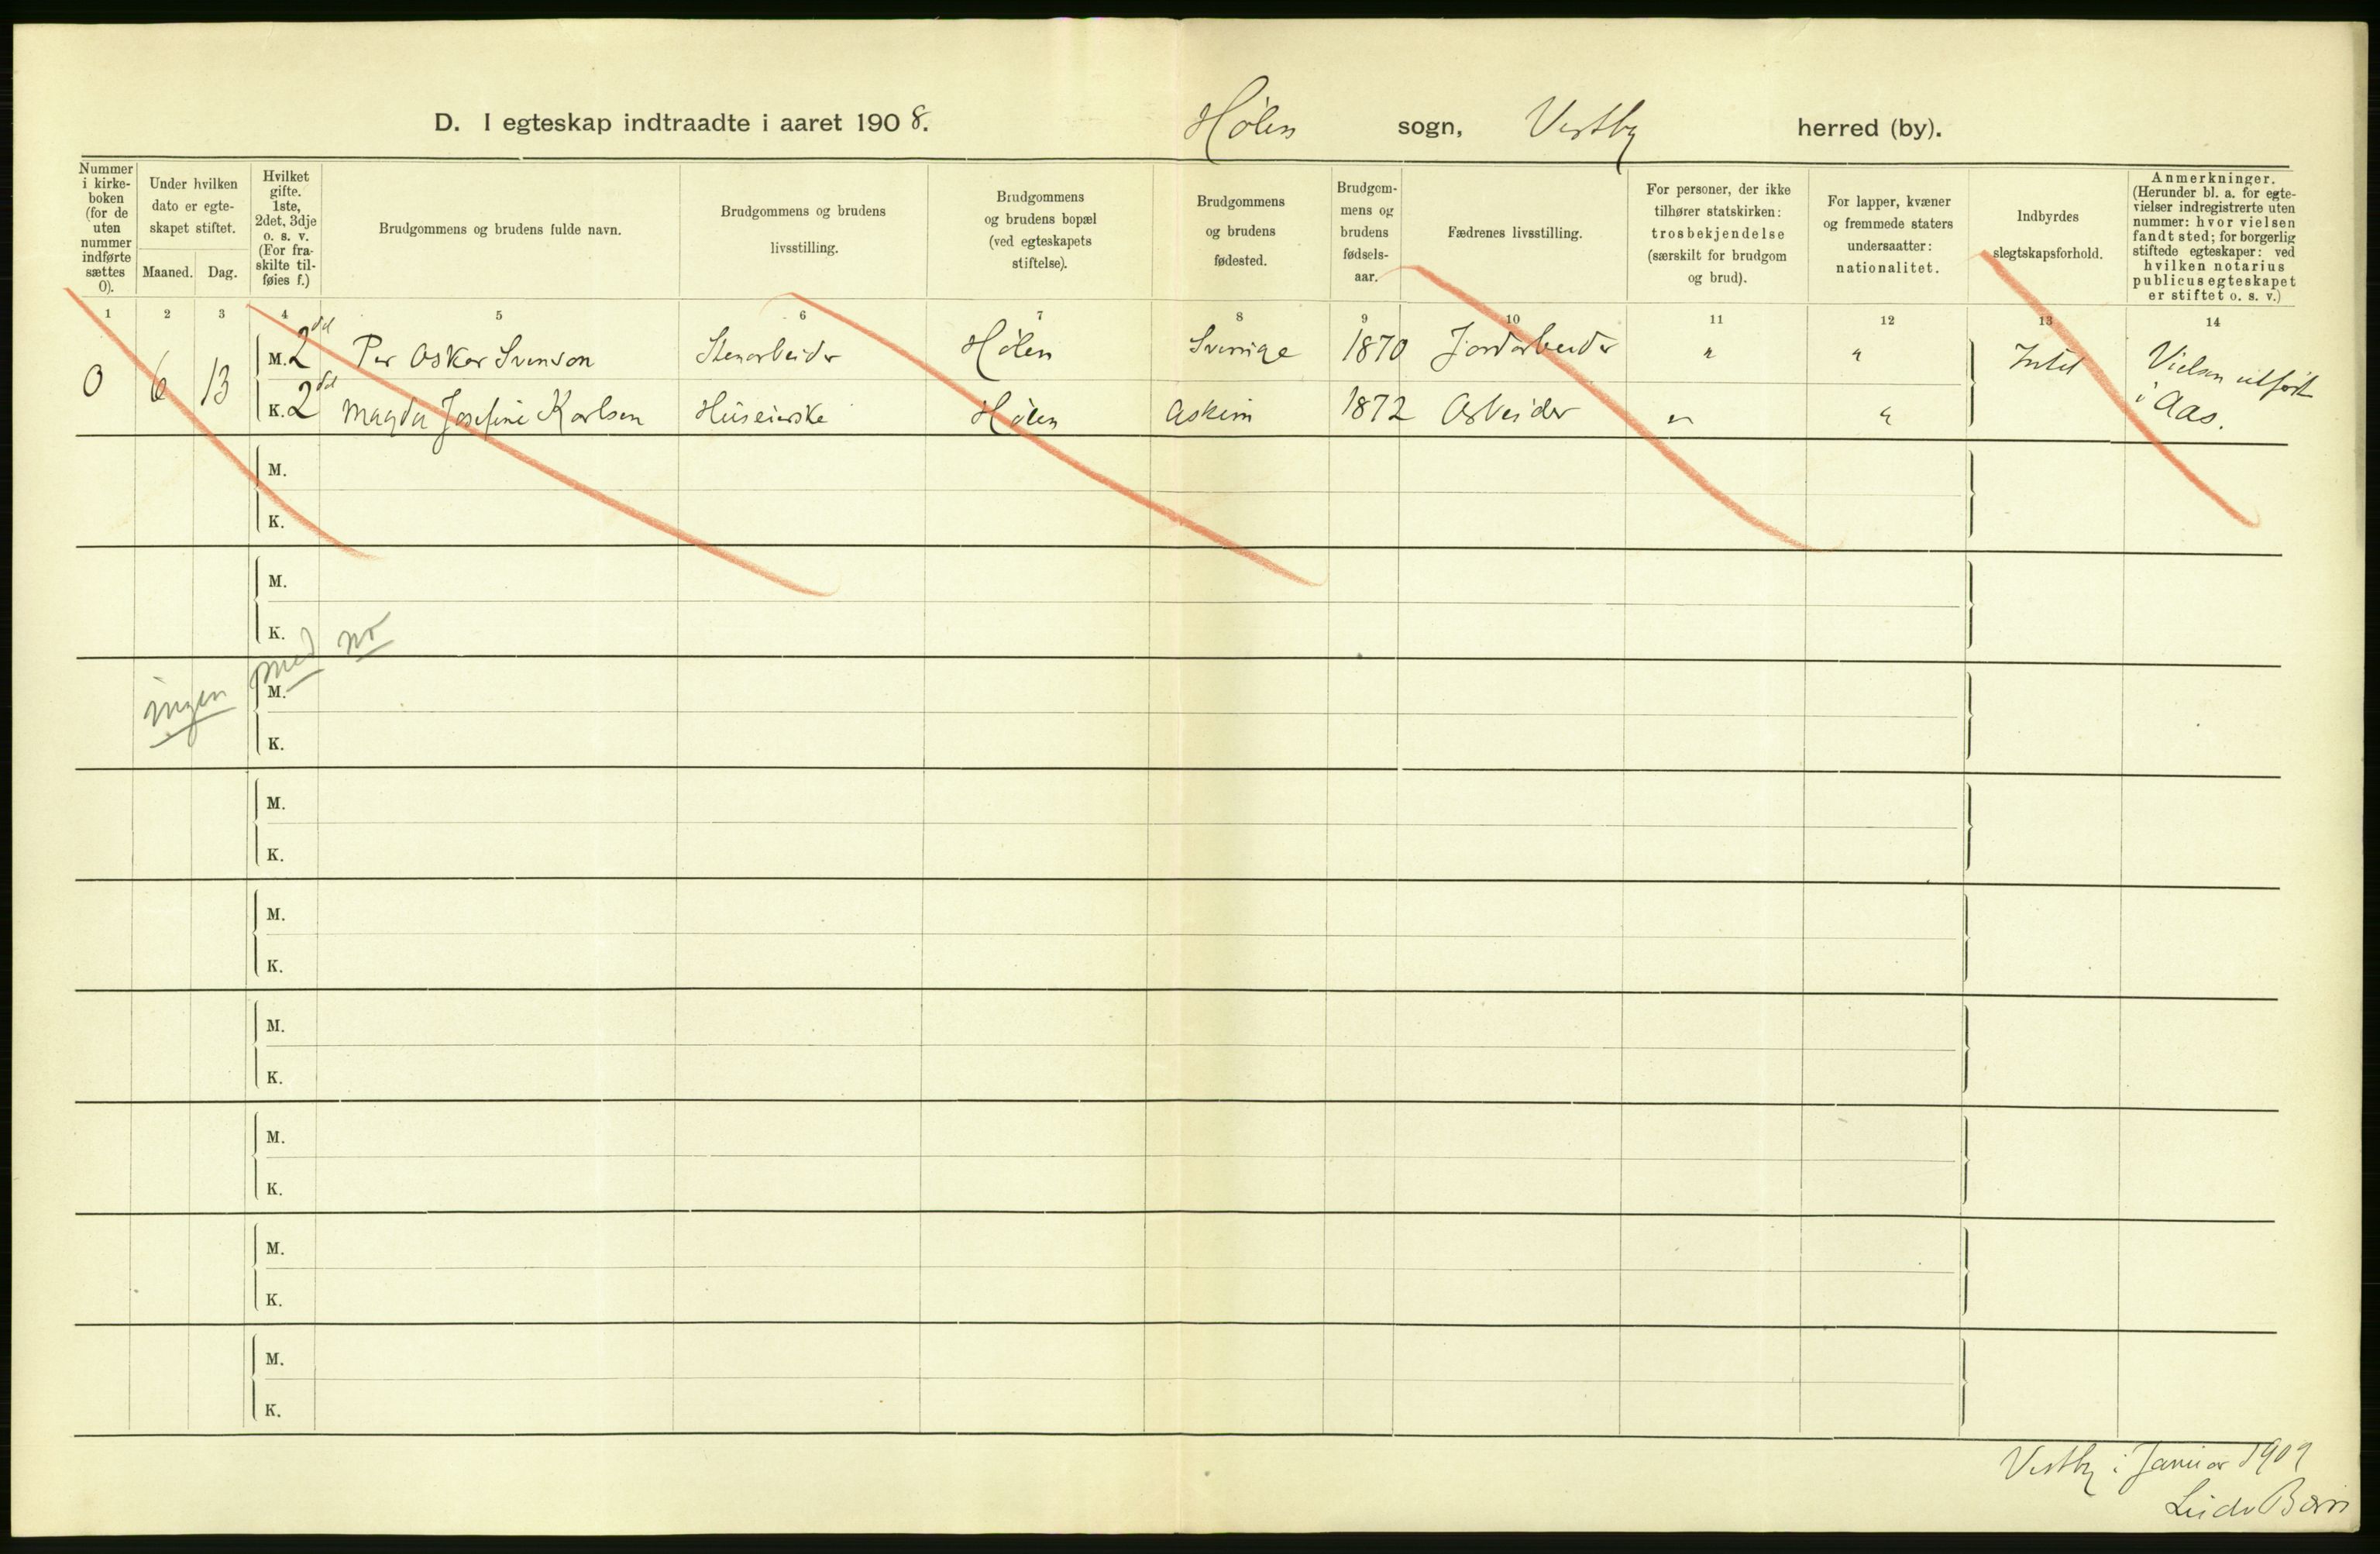 D. I egteskap indtraadte i aaret 1908. Hølen sogn, Vestby herred (by).
Nummer i kirke-boken (for de uten nummer indførte sættes 0).
Under hvilken dato er egte-skapet stiftet.
Maaned. Dag.
Hvilket gifte. 1ste, 2det, 3dje o. s. v. (For fra-skilte til-føies f.)
Brudgommens og brudens fulde navn.
Brudgommens og brudens livsstilling.
Brudgommens og brudens bopæl (ved egteskapets stiftelse).
Brudgommens og brudens fødested.
Brudgom-mens og brudens fødsels-aar.
Fædrenes livsstilling.
For personer, der ikke tilhører statskirken: trosbekjendelse (særskilt for brudgom og brud).
For lapper, kvæner og fremmede staters undersaatter: nationalitet.
Indbyrdes slegtskapsforhold.
Anmerkninger. (Herunder bl. a. for egte-vielser indregistrerte uten nummer: hvor vielsen fandt sted; for borgerlig stiftede egteskaper: ved hvilken notarius publicus egteskapet er stiftet o. s. v.)
1 2 3 4 5 6 7 8 9 10 11 12 13 14
0 6 13 M. 2det Per Oskar Svenson Stenarbeider Hølen Sverige 1870 Jordarbeider " " Intet Vielsen utført
K. 2det Magda Josefine Karlsen Huseierske Hølen Askim 1872 Arbeider " " i Aas.
M.
K.
M.
K.
ingen med no
M.
K.
M.
K.
M.
K.
M.
K.
M.
K.
M.
K.
M.
K.
Vestby i Januar 1909